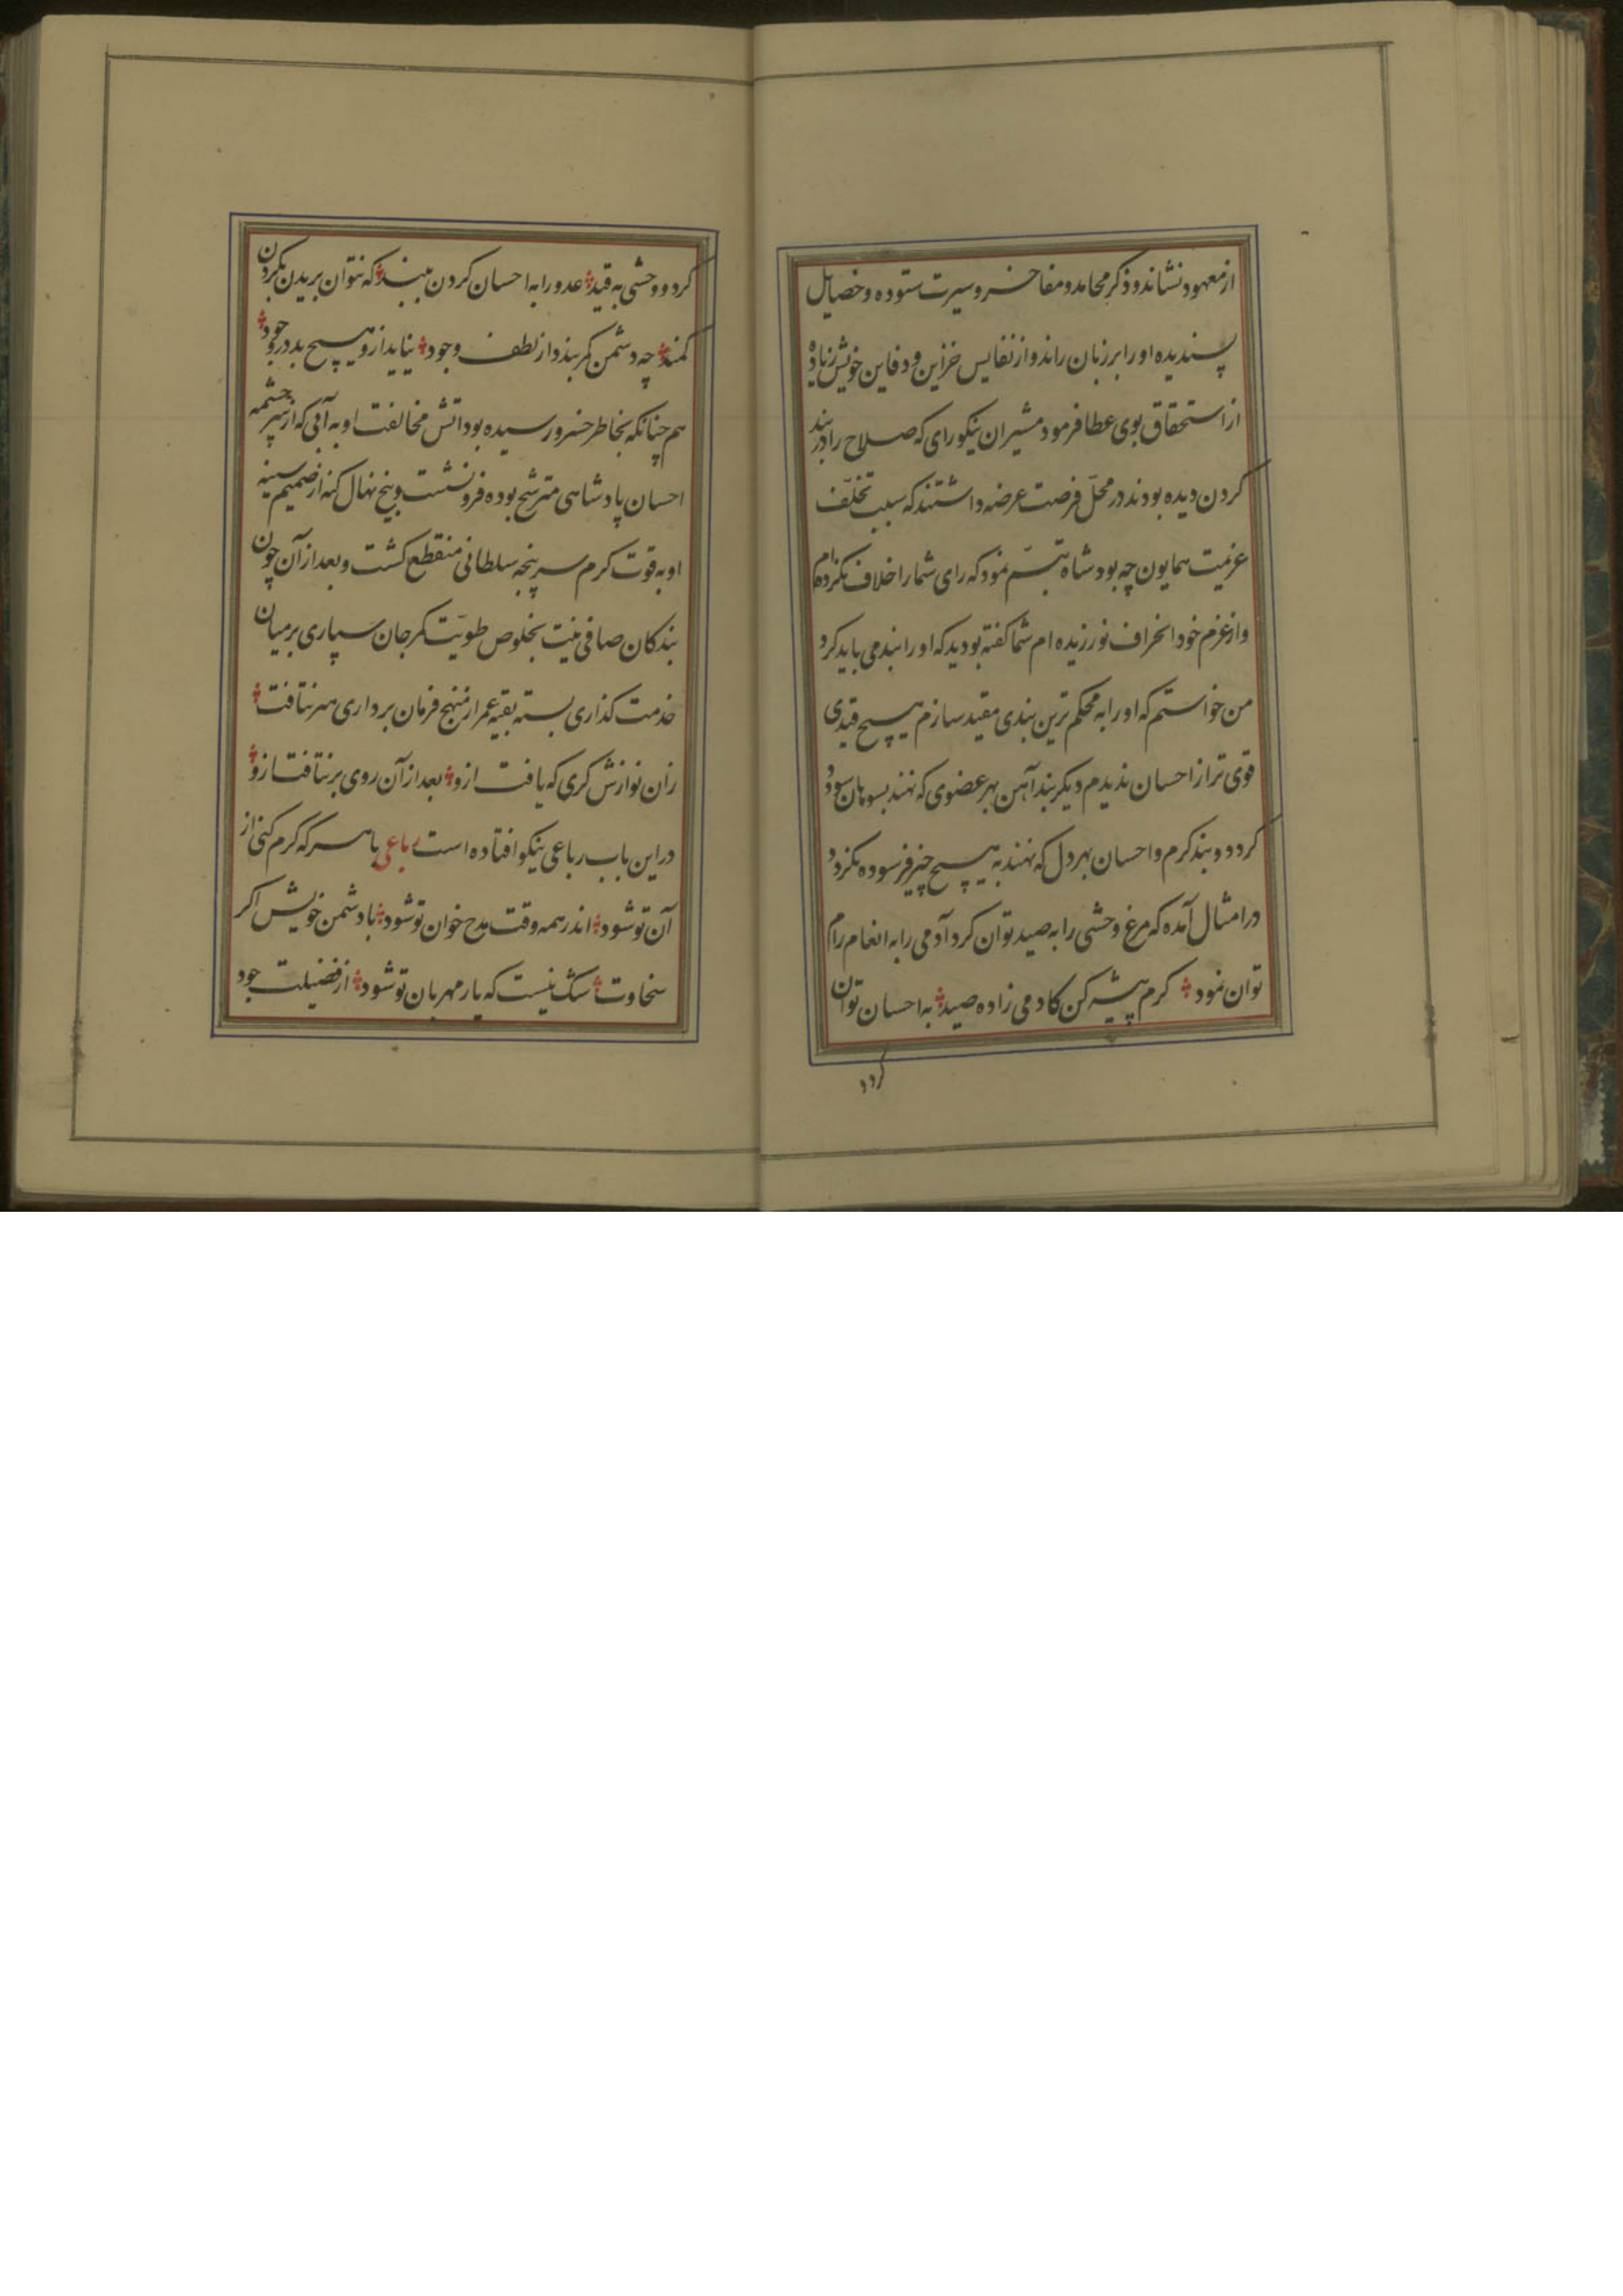 از معهود نشاند و ذکر محامد و مفاخر و سیرت ستوده و خصایل
پسندیده او را بر زبان راند و از نفایس خزاین و دفاین خویش زیاده
از استحقاق بوی عطا فرمود مشیران نیکو رای که صلاح را در بند
کردن دیده بودند در محلّ فرصت عرضه داشتند که سبب تخلّف
عزیمت همایون چه بود شاه تبسّم نمود که رای شما را خلاف نکرده‌ام
و از عزم خود انحراف نورزیده ام شما گفته بودید که او را بند می باید کرد
من خواستم که او را به محکم ترین بندی مقید سازم هیچ قیدی
قوی تر از احسان ندیدم دیگر بند آهن بهر عضوی که نهند بسوهان سوده
کردد و بند کرم و احسان بهر دل که نهند به هیچ چیز فرسوده نکردد
در امثال آمده که مرغ وحشی را به صید توان کرد آدمی را به انعام رام
توان نمود کرم پیشه کن کادمی زاده صید به احسان توان
کردو
کرد و وحشی به قید عدو را به احسان کردن ببند که نتوان بریدن بکردن
کمند چه دشمن کرم بیند و از لطف وجود نیاید ازو هیچ بد در وجود
هم چنانکه بخاطر خسرو رسیده بود اتش مخالفت او به آبی که از سر چشمه
احسان پادشاهی مترشح بوده فرو نشست و بیخ نهال کینه از صمیم سینه
او به قوت کرم سر پنجه سلطانی منقطع کشت و بعد از آن چون
بندکان صافی نیت بخلوص طویّت کمر جان سپاری بر میان
خدمت کذاری بسته بقیه عمر از منهج فرمان برداری سر نتافت
زان نوازش کری که یافت ازو بعد از آن روی بر نتافت ازو
در این باب رباعی نیکو افتاده است رباعی با هر که کرم کنی از
آن تو شود اندر همه وقت مدح خوان تو شود با دشمن خویش اکر
سخاوت شک نیست که یار مهربان تو شود از فضیلت جود